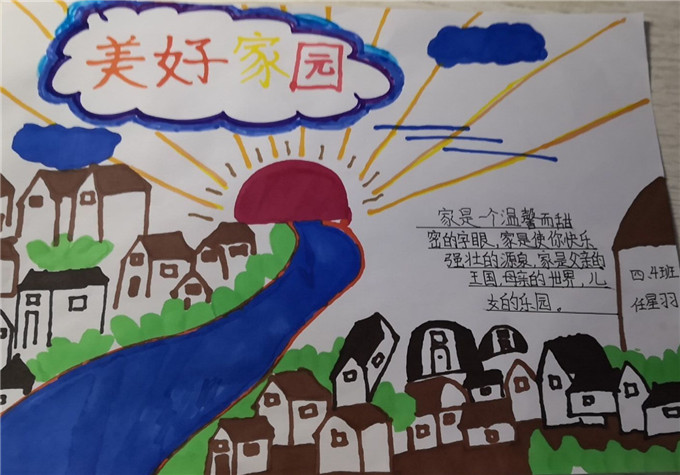 美好家园
家是一个温馨而甜
密的字眼,家是使你快乐
强壮的源泉,家是父亲的
王国,母亲的世界,儿
女的乐园。
四.4班
任星羽